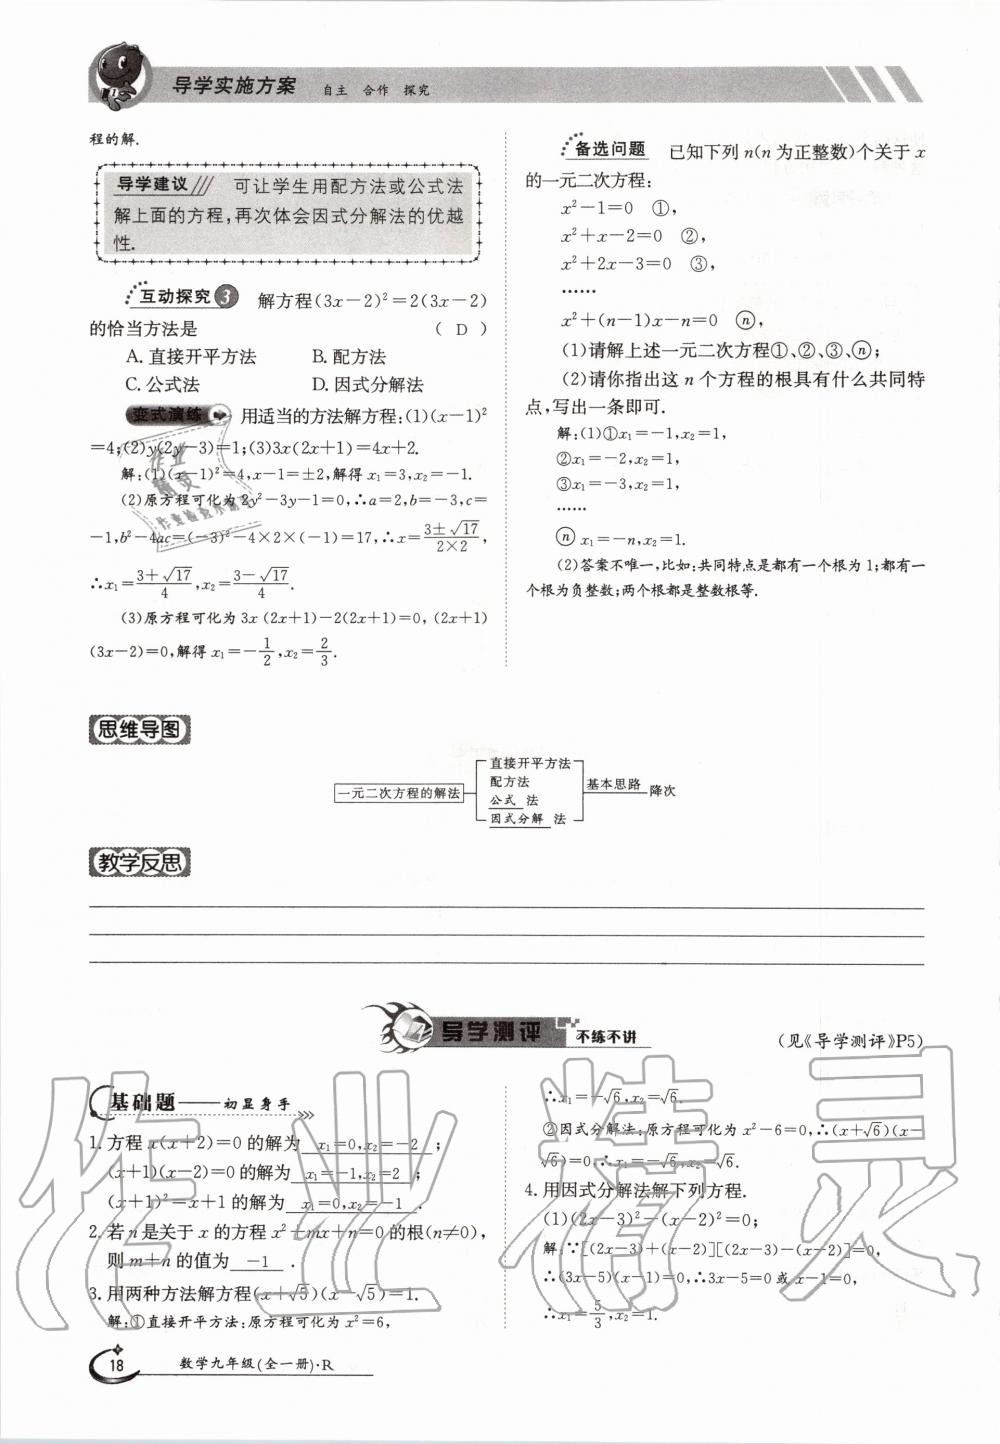 导学实施方案 自主 合作 探究
程的解.
导学建议 可让学生用配方法或公式法
解上面的方程,再次体会因式分解法的优越
性.
互动探究3 解方程(3x－2)²＝2(3x－2)
的恰当方法是 ( D )
A. 直接开平方法 B. 配方法
C. 公式法 D. 因式分解法
变式演练 用适当的方法解方程:(1)(x－1)²
＝4;(2)y(2y－3)＝1;(3)3x(2x＋1)＝4x＋2.
解:(1)(x－1)²＝4,x－1＝±2,解得 x₁＝3,x₂＝－1.
(2)原方程可化为 2y²－3y－1＝0,∴a＝2,b＝－3,c＝
－1,b²－4ac＝(－3)²－4×2×(－1)＝17,∴x＝(3±√17)/(2×2),
∴x₁＝(3＋√17)/4,x₂＝(3－√17)/4.
(3)原方程可化为 3x(2x＋1)－2(2x＋1)＝0,(2x＋1)
(3x－2)＝0,解得 x₁＝－1/2,x₂＝2/3.
备选问题 已知下列 n(n 为正整数)个关于 x
的一元二次方程:
x²－1＝0 ①,
x²＋x－2＝0 ②,
x²＋2x－3＝0 ③,
……
x²＋(n－1)x－n＝0 ⓝ,
(1)请解上述一元二次方程①、②、③、ⓝ;
(2)请你指出这 n 个方程的根具有什么共同特
点,写出一条即可.
解:(1)①x₁＝－1,x₂＝1,
②x₁＝－2,x₂＝1,
③x₁＝－3,x₂＝1,
……
ⓝ x₁＝－n,x₂＝1.
(2)答案不唯一,比如:共同特点是都有一个根为 1;都有一
个根为负整数;两个根都是整数根等.
思维导图
一元二次方程的解法
直接开平方法
配方法
公式 法
因式分解 法
基本思路 降次
教学反思
导学测评 不练不讲 (见《导学测评》P5)
基础题——初显身手
1. 方程 x(x＋2)＝0 的解为 x₁＝0,x₂＝－2 ;
(x＋1)(x－2)＝0 的解为 x₁＝－1,x₂＝2 ;
(x＋1)²＝x＋1 的解为 x₁＝0,x₂＝－1 .
2. 若 n 是关于 x 的方程 x²＋mx＋n＝0 的根(n≠0),
则 m＋n 的值为 －1 .
3. 用两种方法解方程(x＋√5)(x－√5)＝1.
解:①直接开平方法:原方程可化为 x²＝6,
∴x₁＝－√6,x₂＝√6.
②因式分解法:原方程可化为 x²－6＝0,∴(x＋√6)(x－
√6)＝0,∴x₁＝－√6,x₂＝√6.
4. 用因式分解法解下列方程.
(1)(2x－3)²－(x－2)²＝0;
解:∵[(2x－3)＋(x－2)][(2x－3)－(x－2)]＝0,
∴(3x－5)(x－1)＝0,∴3x－5＝0 或 x－1＝0,
∴x₁＝5/3,x₂＝1.
18 数学九年级(全一册)·R
作业精灵